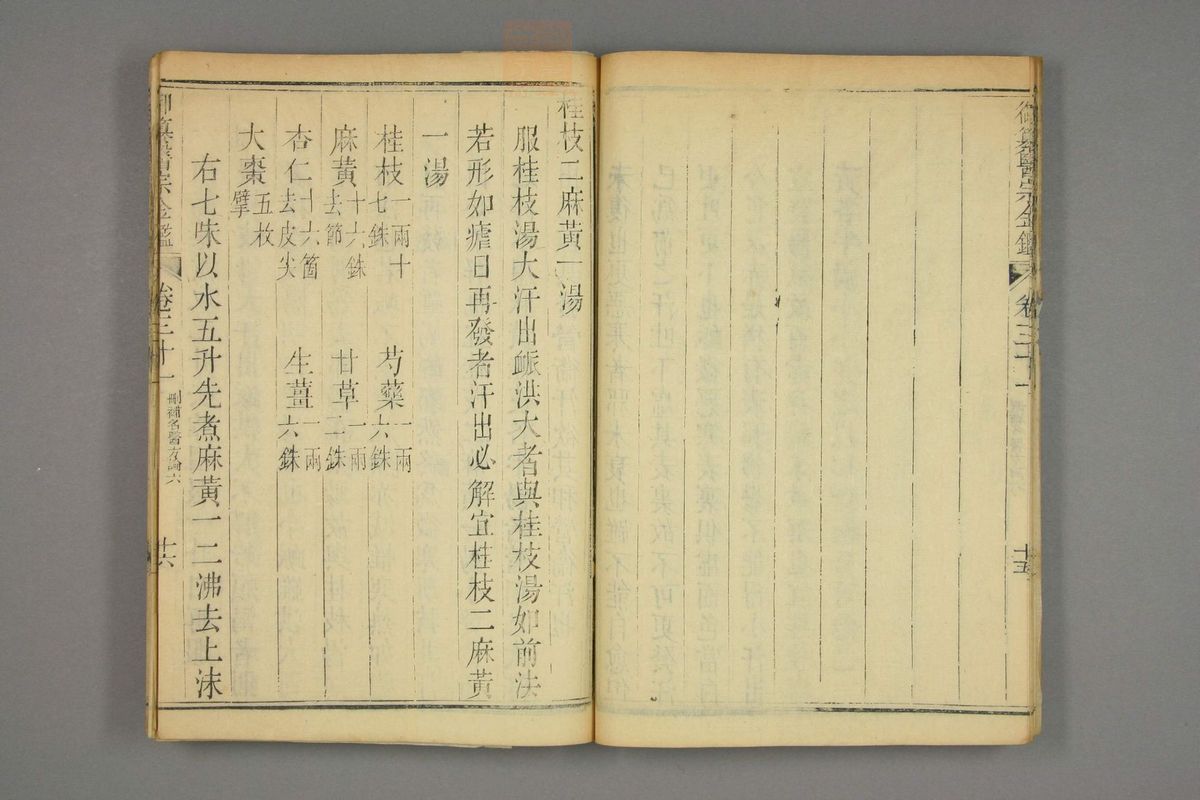 御纂醫宗金鑑
卷三十一
十五
桂枝二麻黃一湯
服桂枝湯大汗出脈洪大者與桂枝湯如前法
若形如瘧日再發者汗出必解宜桂枝二麻黃
一湯
桂枝一兩十七銖 芍藥一兩六銖
麻黃十六銖去節 甘草一兩二銖
杏仁十六箇去皮尖 生薑一兩六銖
大棗五枚擘
右七味以水五升先煮麻黃一二沸去上沫
御纂醫宗金鑑
卷三十一
刪補名醫方論六
十六